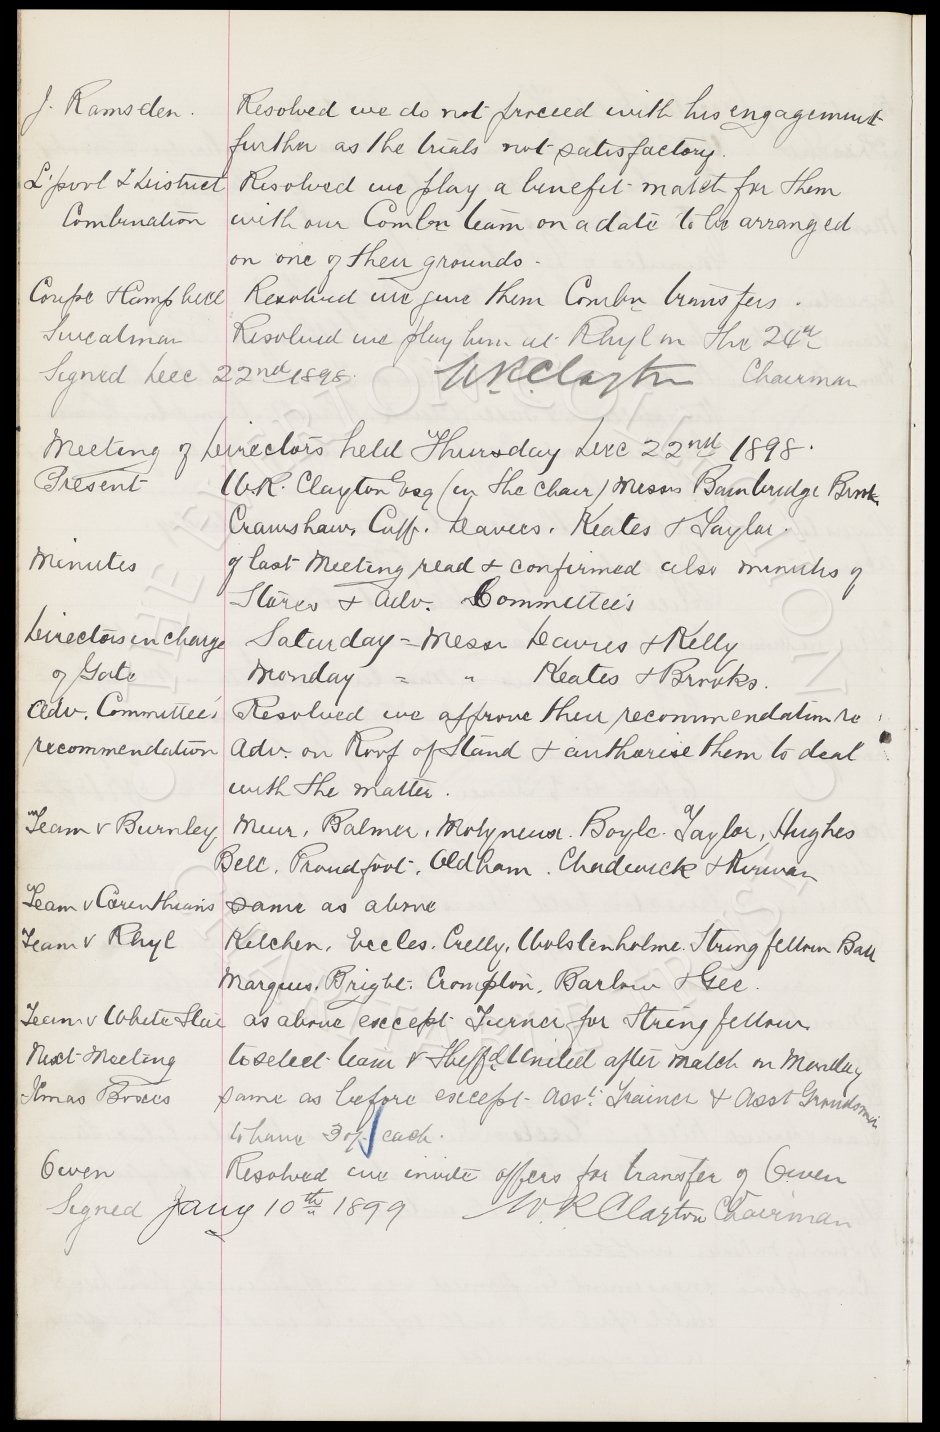 J. Ramsden. Resolved we do not proceed with his engagement
further as the trials not satisfactory.
L'pool & District Resolved we play a benefit match for them
Combination with our Combn team on a date to be arranged
on one of their grounds.
Coupe & Campbell Resolved we give them Combn transfers.
Sweatman Resolved we play him at Rhyl on the 24th
Signed Dec 22nd 1898. W.R. Clayton Chairman
Meeting of Directors held Thursday Dec 22nd 1898.
Present W.R. Clayton Esq (in the chair) Messrs Bainbridge Brooks
Crawshaw, Cuff. Davies. Keates & Taylor.
Minutes of last Meeting read & confirmed also minutes of
Stores & Adv. Committee's
Directors in charge Saturday = Messrs Davies & Kelly
of Gate Monday = " Keates & Brooks.
Adv. Committee's Resolved we approve their recommendation re
recommendation Adv. on Roof of Stand & authorise them to deal
with the matter.
Team v Burnley Muir, Balmer, Molyneux. Boyle. Taylor, Hughes
Bell. Proudfoot. Oldham. Chadwick & Kirwan
Team v Corinthians same as above
Team v Rhyl Kitchen, Eccles. Crelly, Wolstenholme. Stringfellow Ball
Marques, Bright. Crompton, Barlow & Gee.
Team v White Star as above except Turner for Stringfellow
Next Meeting to select team v Sheffd United after match on Monday
Xmas Boxes same as before except Asst. Trainer & Asst Groundsman
to have 30/- each.
Owen Resolved we invite offers for transfer of Owen
Signed Jany 10th 1899 W. R Clayton Chairman